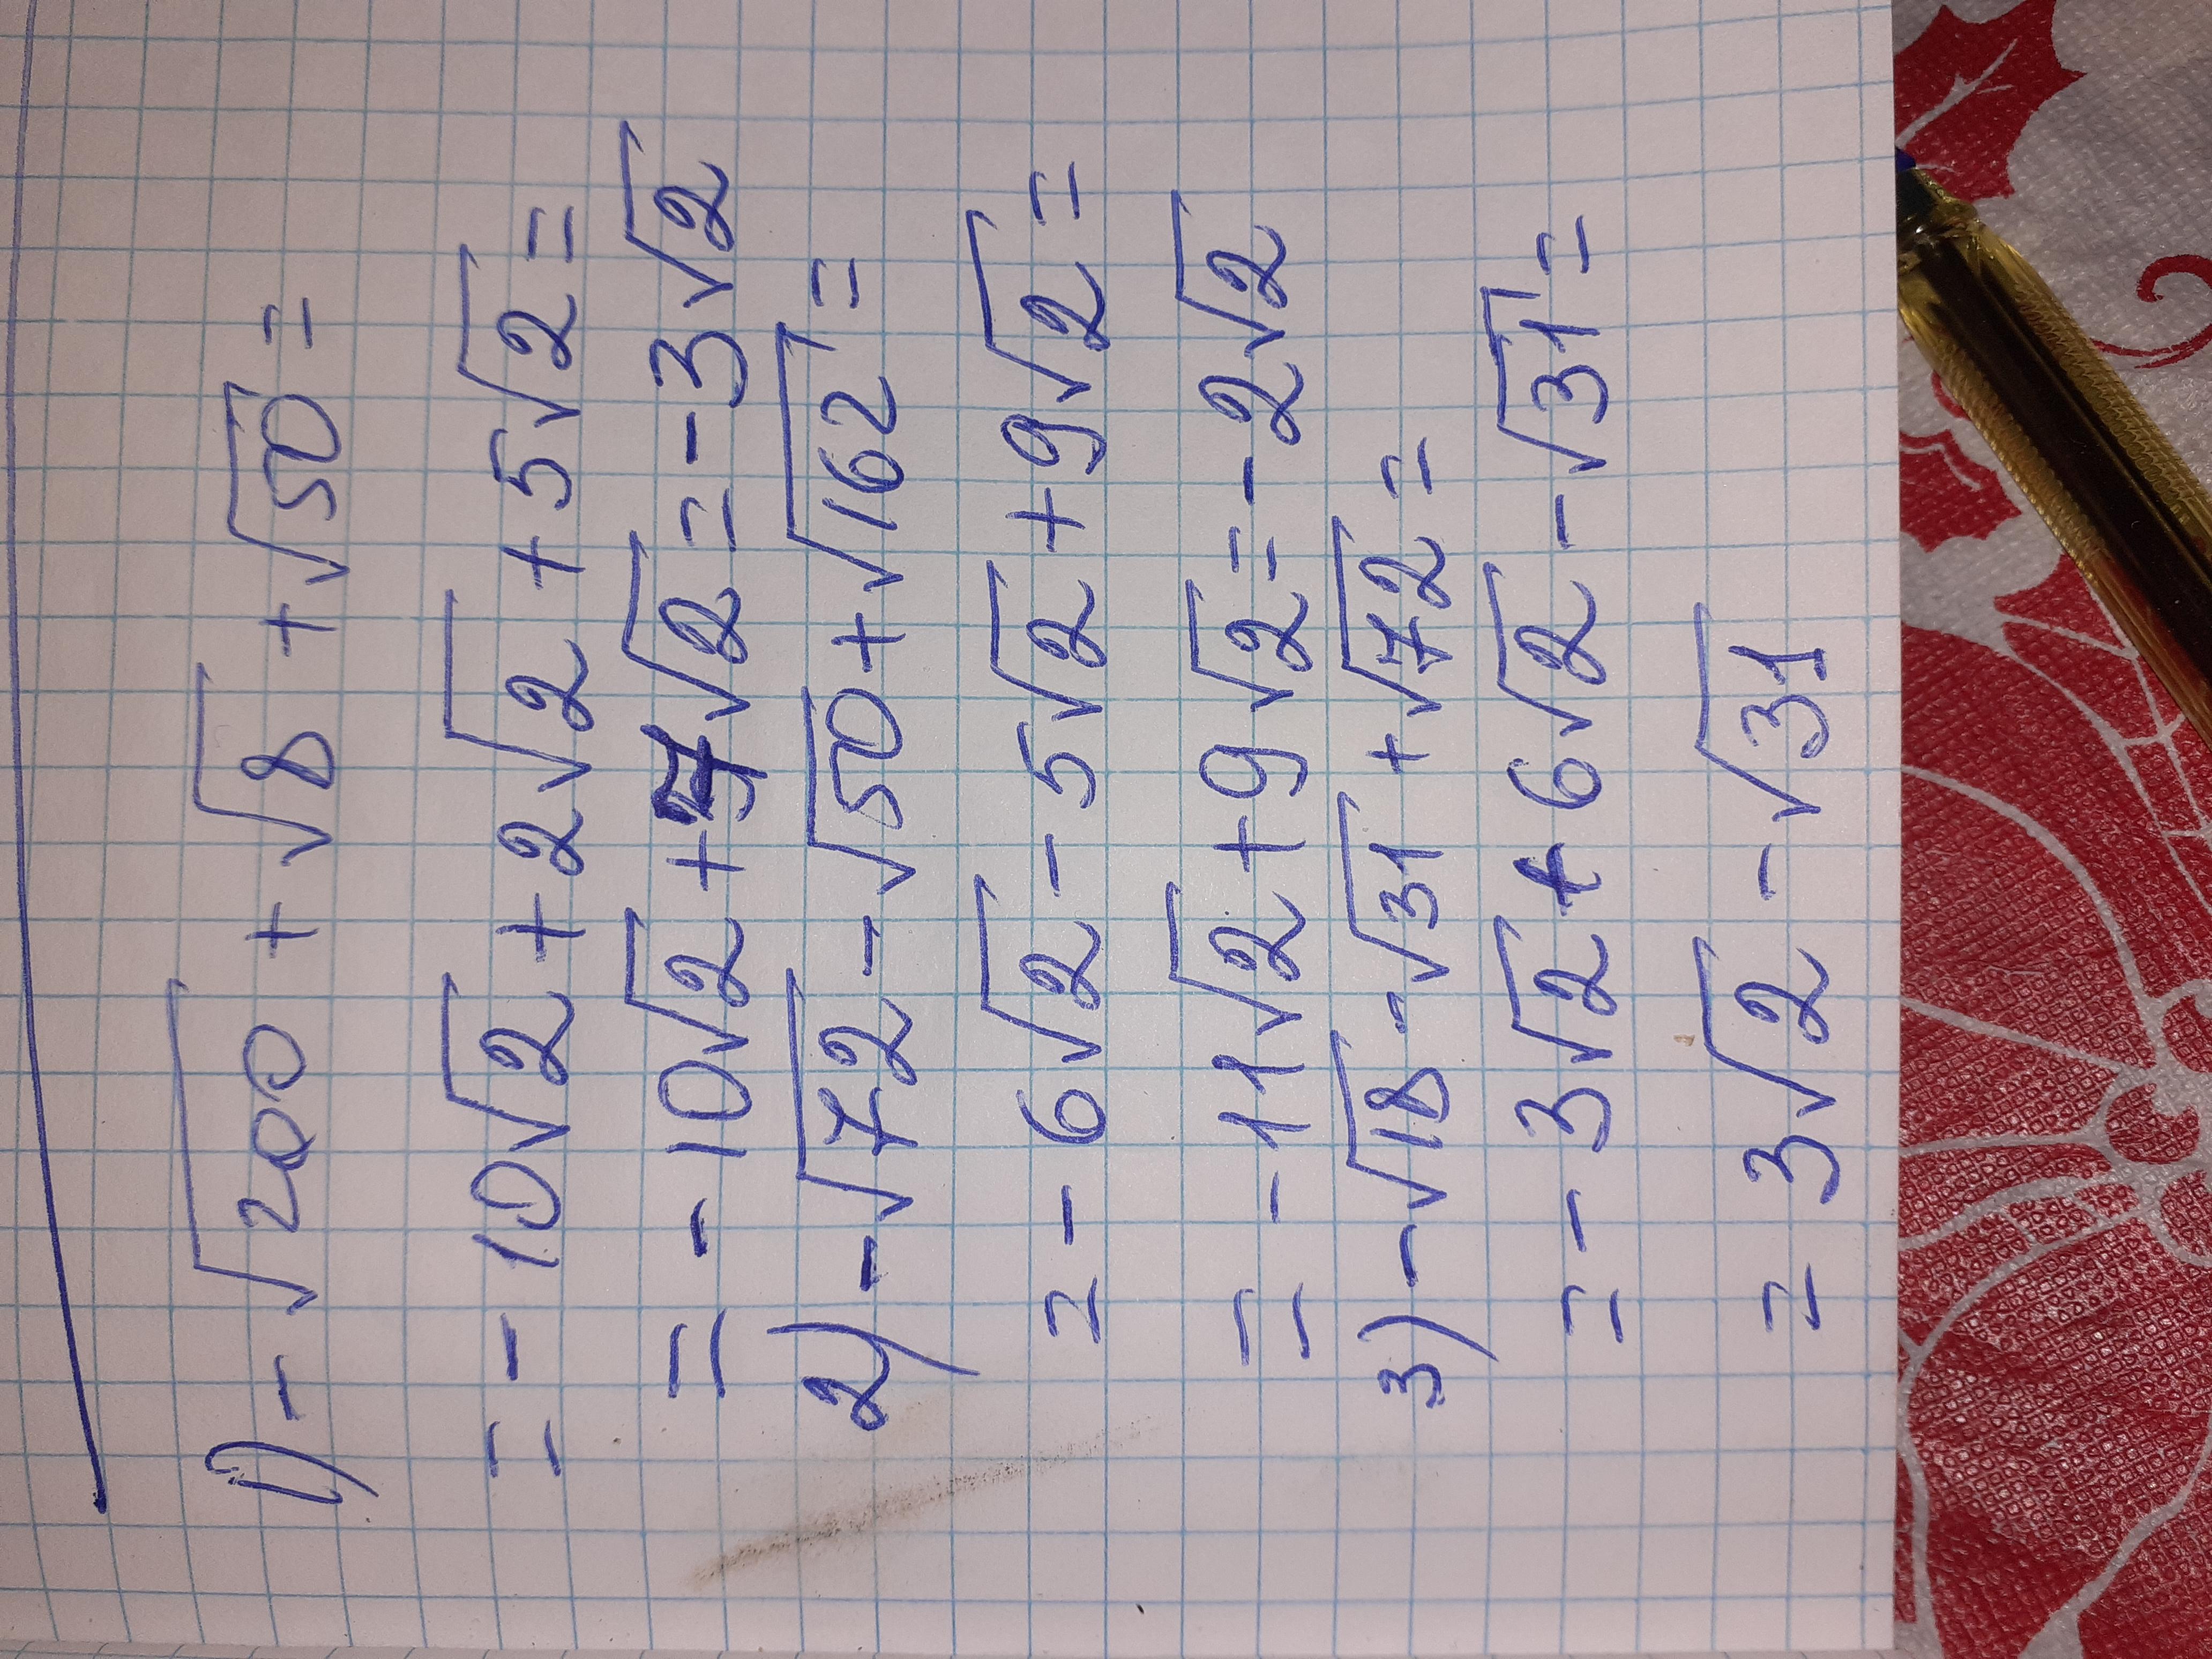 1) -√200 + √8 + √50 =
= -10√2 + 2√2 + 5√2 =
= -10√2 + 7√2 = -3√2
2) -√72 - √50 + √162 =
= -6√2 - 5√2 + 9√2 =
= -11√2 + 9√2 = -2√2
3) -√18 - √31 + √72 =
= -3√2 + 6√2 - √31 =
= 3√2 - √31